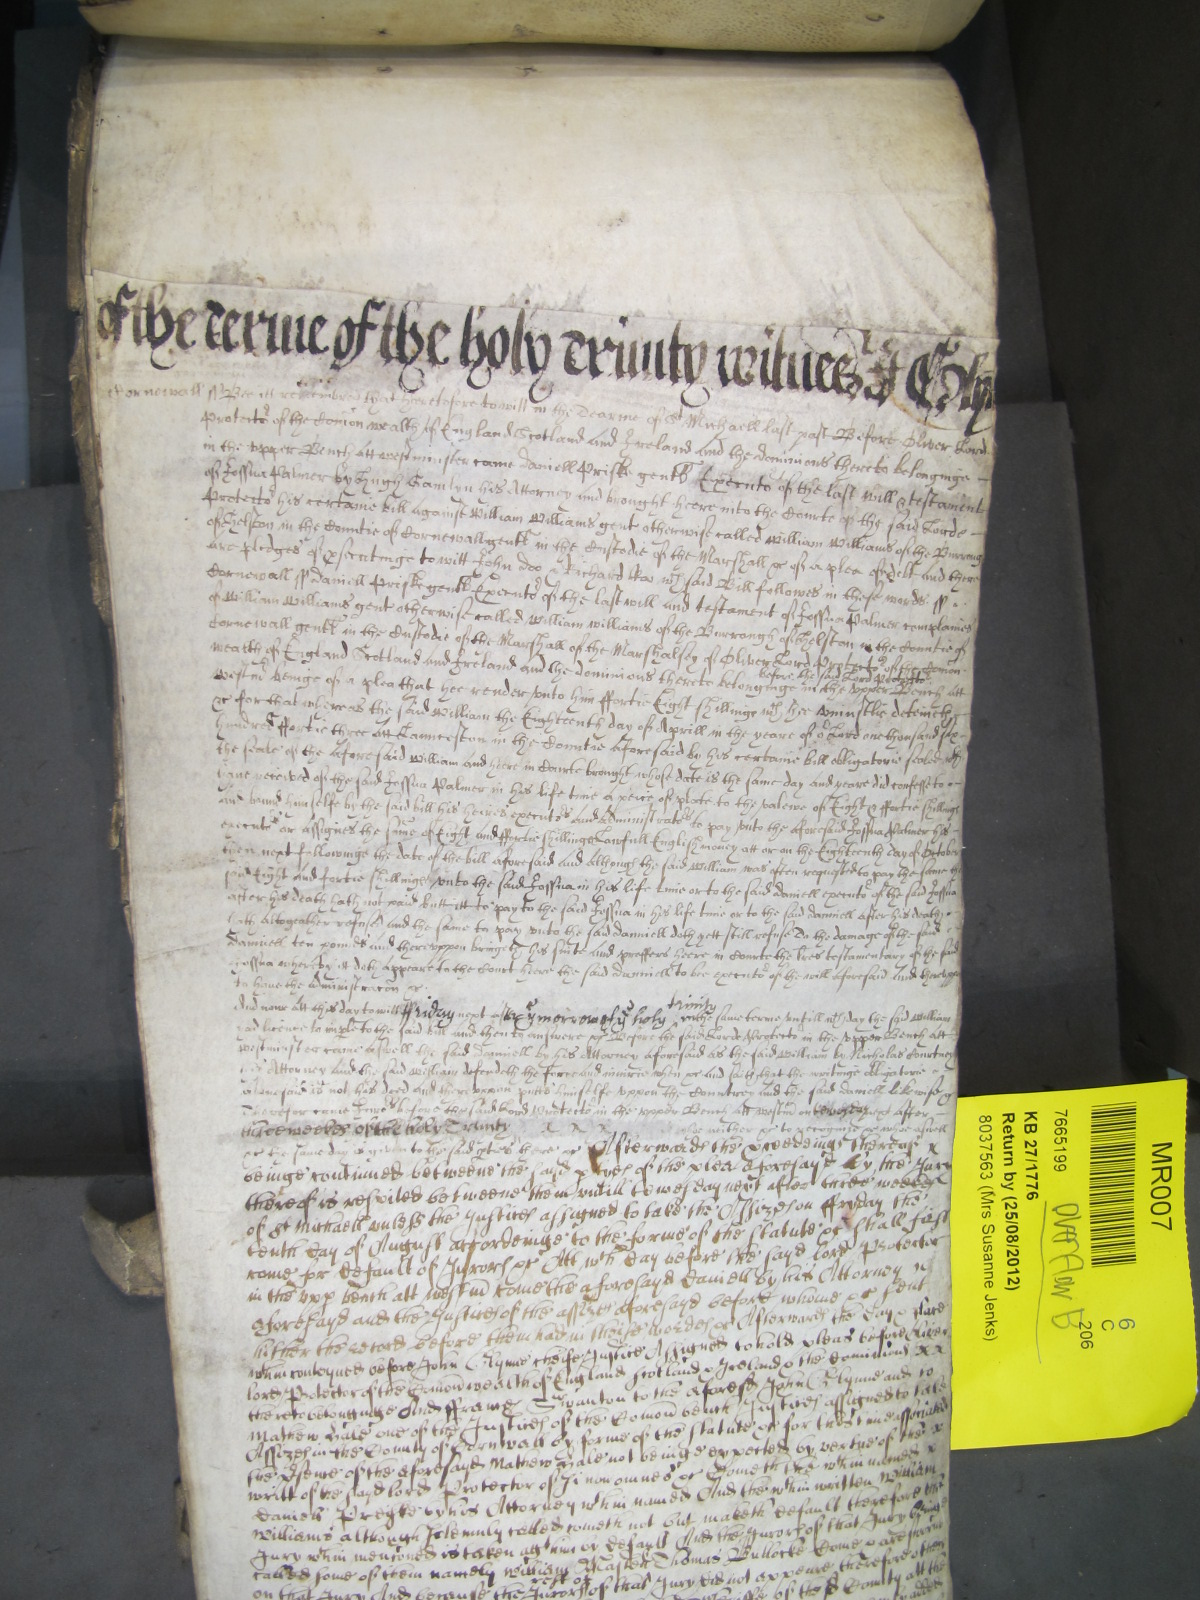 of the terme of the holy Trinity witnes
Cornewall ss Bee itt remembred that heeretofore to witt in the Tearme of St Michaell last past Before Oliver Lord
Protector of the Comon wealth of England Scotland and Ireland and the dominions thereto belonginge
in the upper Bench att westminster came Daniell Priske gent Executor of the last will & testament
of Jossua Palmer by Hugh Hamlyn his Attorney and brought heere into the Courte of the said Lorde
Protector his certaine bill against William Williams gent otherwise called William Williams of the Burroug
of Helston in the Countie of Cornewall gent in the Custodie of the Marshall &c of a plea of debt and there
are pledges of prosecutinge to witt John Doo & Richard Roo wch said Bill followes in these words ss
Cornewall ss Daniell Priske gent Executor of the last will and testament of Jossua Palmer complaines
of William Williams gent otherwise called William Williams of the Burrough of Helston in the Countie of
Cornewall gent in the Custodie of the Marshall of the Marshalsey of Oliver Lord Protector of the Comon
wealth of England Scotland and Ireland and the dominions thereto belonginge before the said Lord Protector in the upper Bench att
westmr beinge of a plea that hee render unto him ffortie Eight shillings wch hee uniustlie deteineth
&c for that whereas the said William the Eighteenth day of Aprill in the yeare of or Lord one thousand six
hundred ffortie three att Launceston in the Countie aforesaid by his certaine bill obligatorie sealed wth
the seale of the aforesaid William and heere in Courte brought whose date is the same day and yeare did confesse to
have received of the said Jossua Palmer in his life time a peice of plate to the valewe of Eight & ffortie shillings
and bound himselfe by the said bill his heires executors and Administrators to pay unto the aforesaid Jossua Palmer his
executors or assignes the sume of Eight and ffortie shillinges Lawfull English money att or on the Eighteenth day of October
then next followinge the date of the bill aforesaid and Although the said William was often requested to pay the same
said Eight and fortie shillings unto the said Jossua in his life time or to the said Daniell executor of the said Jossua
after his death hath not paid butt itt to pay to the said Jossua in his life time or to the said Daniell after his death
hath altogeather refused and the same to pay unto the said Daniell doth yett still refuse To the damage of the said
Daniell ten pounds and thereuppon bringeth his suite and proffers heere in Courte the lres testamentary of the said
Jossua whereby it doth appeare to the Court heere the said Daniell to bee executor of the will aforesaid And thereuppon
to have the administracon &c
And now att this day to witt Friday next after ye morrow of ye holy Trinity in the same terme untill wch day the said William
had licence to imple to the said bill and then to answere &c Before the said Lord Protector in the upper Bench att
westminster came aswell the said Daniell by his Attorney aforesaid As the said William by Nicholas Courtney
his Attorney And the said William defendeth the force and iniurie when &c And saith that the writinge obligatorie
aforesaid is not his deed and thereuppon putts himselfe uppon the Countrey And the said Daniell likewise
Therefore came Jurie before the said Lord Protector in the upper Bench att westmr on next after
three weekes of the holy Trinity x x x who neither &c to recognize &c whoe aswell
&c the same day is given to the said parties there &c Afterwards the proceedings thereof x
beinge continued betweene the sayd ptyes of the plea aforesayd by the Jury
thereof is respited betweene them untill tewesday next after three weekes
of St Michaell unless the Justices assigned to take the Assizes on ffryday the
tenth day of August accordeinge to the forme of the statute &c shall first
come for default of Jurors &c Att wch day before the sayd lord Protector
in the upp bench att westmr come the aforesayd Daniell by his Attorney
aforesayd And the Justices of the assizes aforesayd before whome &c sent
hither the record before them had in these wordes &c Afterwards the day & place
wthin conteyned before John Glynne cheife Justice Assigned to hold pleas before Oliver
lord Protector of the Comonwealth of England Scotland & Ireland & the dominions
thereto belonginge And ffrancis Swanton to the aforesd John Glynne and to
Mathew Hale one of the Justices of the Comon bench Justices assigned to take
Assizes in the County of Cornwall by forme of the statute &c for this time associated
the psence of the aforesayd Mathew Hale not beinge expected by vertue of the
writt of the sayd lord Protector of Si non omnes &c Come the wthin named
Daniell Preiske by his Attorney wthin named And the wthin written William
Williams although solemnly called cometh not but maketh default therefore the
Jury wthin menconed is taken agt him by default And the Jurors of that Jury beinge
called some of them namely William Thomas Bullocke Come & are sworne
on that Jury And because the rest of the Jurors of that Jury did not appeare therefore others
MR007
6
C
206
7665199
KB 27/1776
Return by (25/08/2012)
8037563 (Mrs Susanne Jenks)